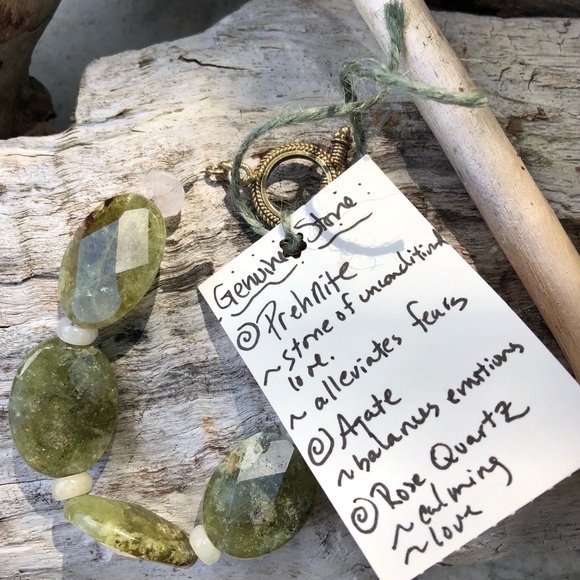 Genuine Stone:
Prehnite
~ Stone of unconditional
love.
~ alleviates fears
Agate
~ balances emotions
Rose Quartz
~ calming
~ love